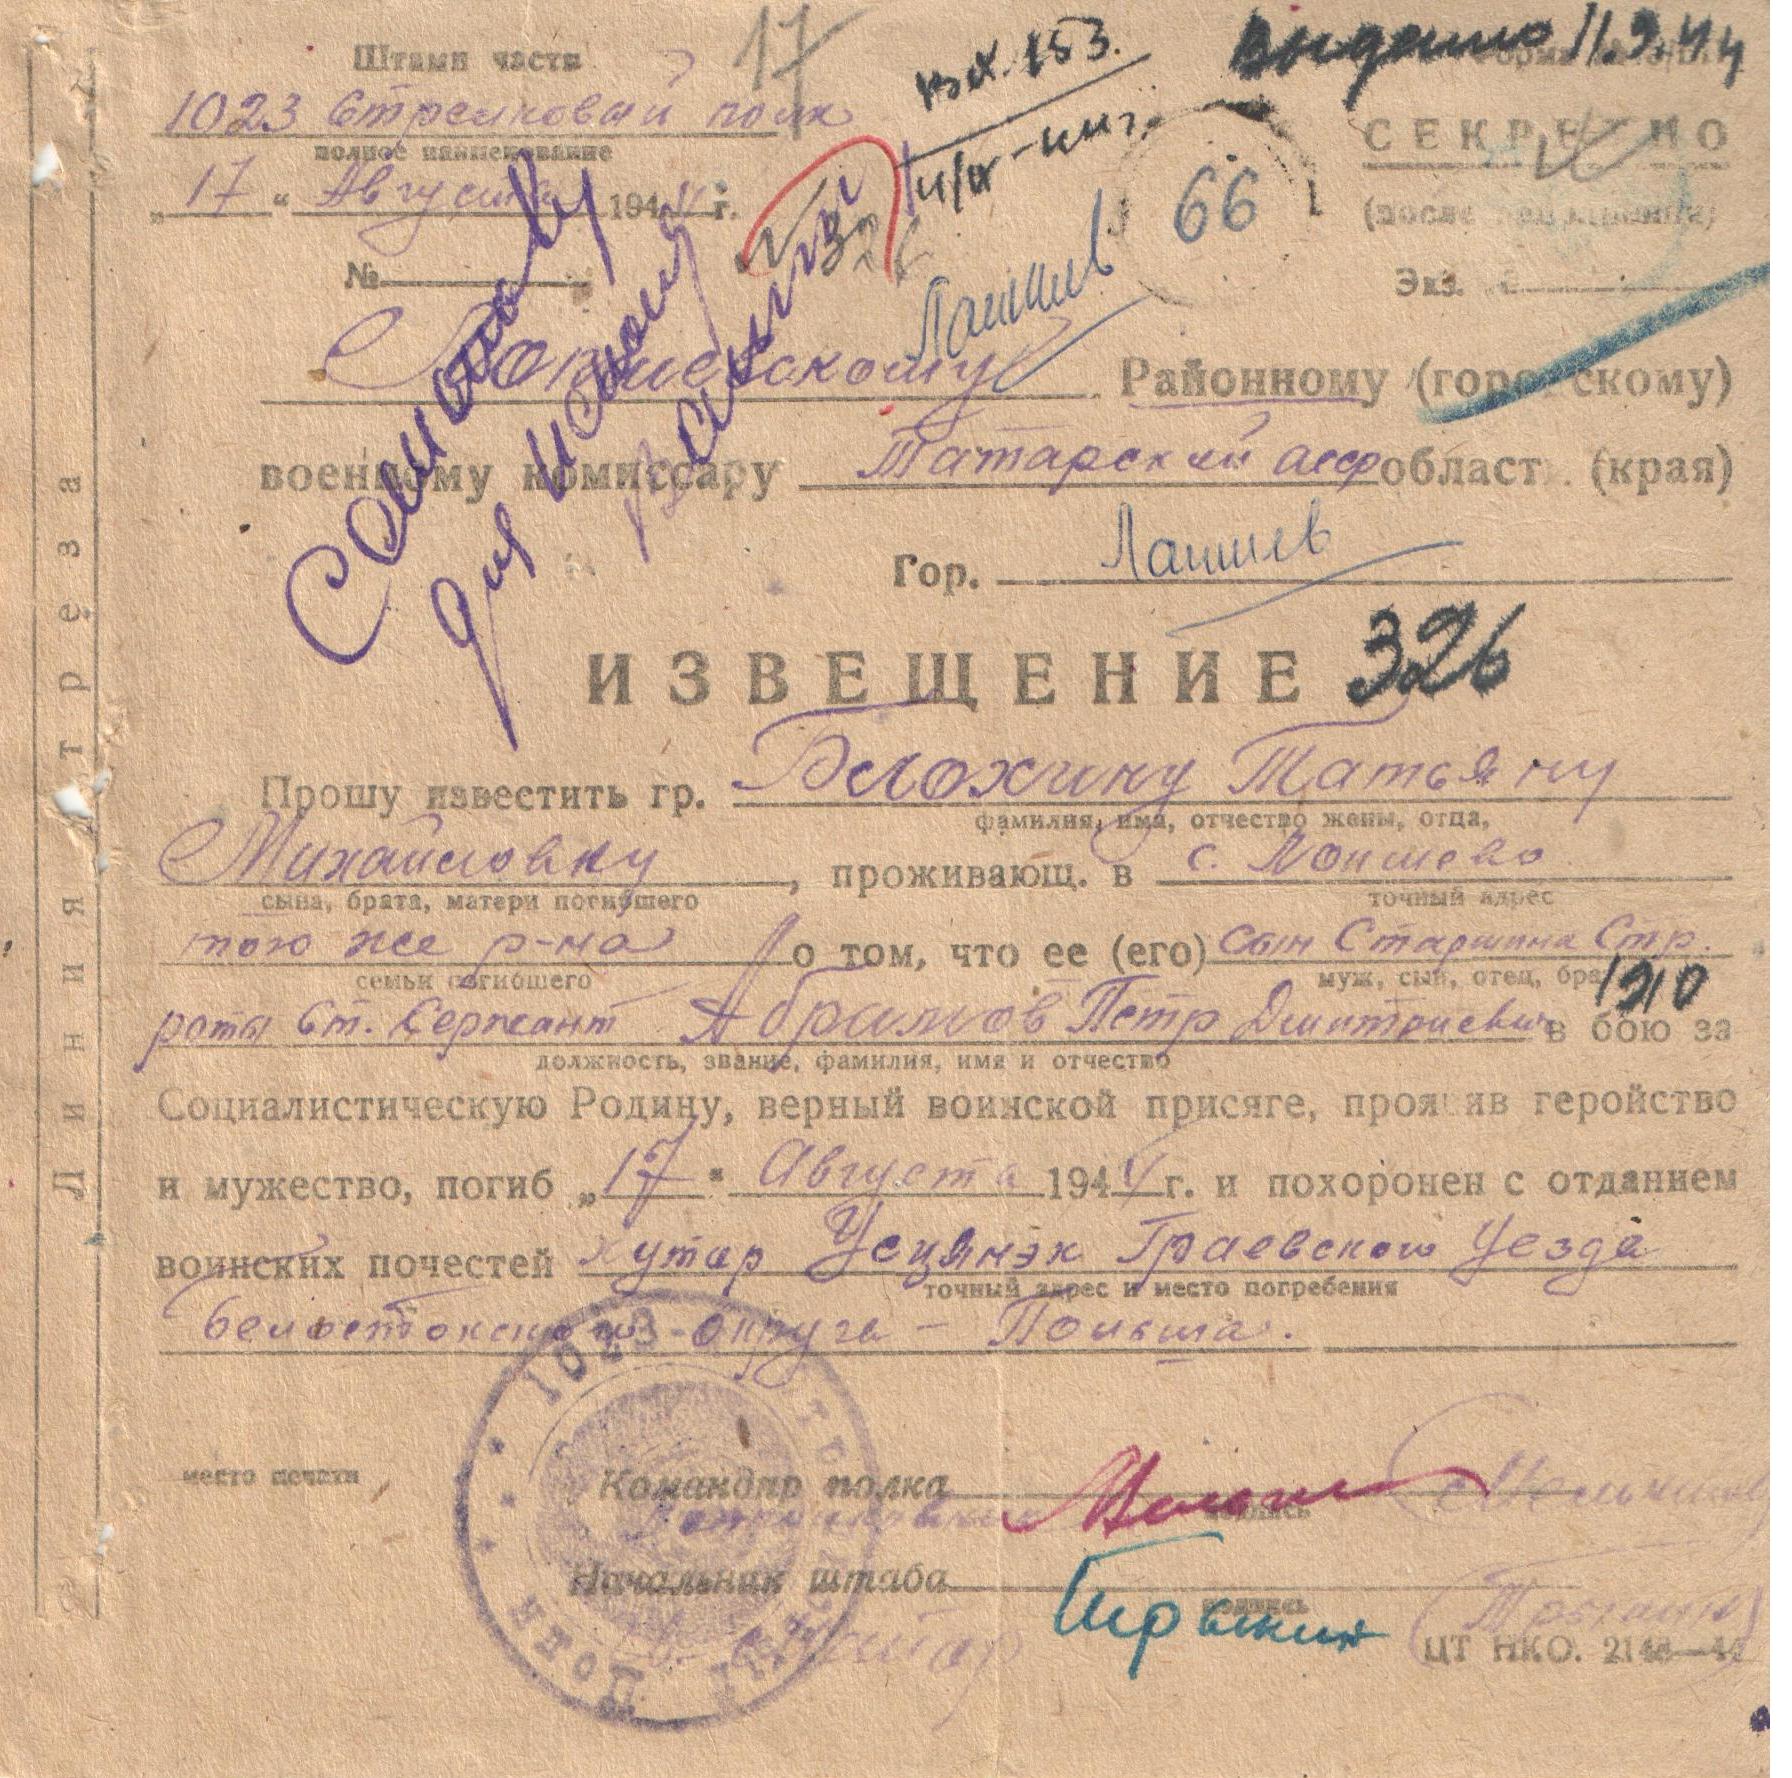 17
вх. 153.
Выдано 11.9.44
Штамп части
1023 Стрелковый полк
полное наименование
СЕКРЕТНО
„17“ Августа 1944 г.
66
(после заполнения)
326
№
Экз. №
Лаишев
Лаишевскому Районному (городскому)
военному комиссару Татарский асср област (края)
Гор. Лаишев
ИЗВЕЩЕНИЕ 326
Прошу известить гр. Блохину Татьяну
фамилия, имя, отчество жены, отца,
Михайловну, проживающ. в с. Лаишево
сына, брата, матери погибшего точный адрес
того же р-на о том, что ее (его) сын Старшина Стр.
семьи погибшего муж, сын, отец, бра
1910
роты Ст. Сержант Абрамов Петр Дмитриевич в бою за
должность, звание, фамилия, имя и отчество
Социалистическую Родину, верный воинской присяге, проявив геройство
и мужество, погиб „17“ Августа 1944 г. и похоронен с отданием
воинских почестей хутор Усцянэк Граевского Уезда
точный адрес и место погребения
белостокского округа – Польша.
1023
место печати
Командир полка
подпись
Начальник штаба
подпись
Полк
ЦТ НКО. 2148—44
Линия отреза